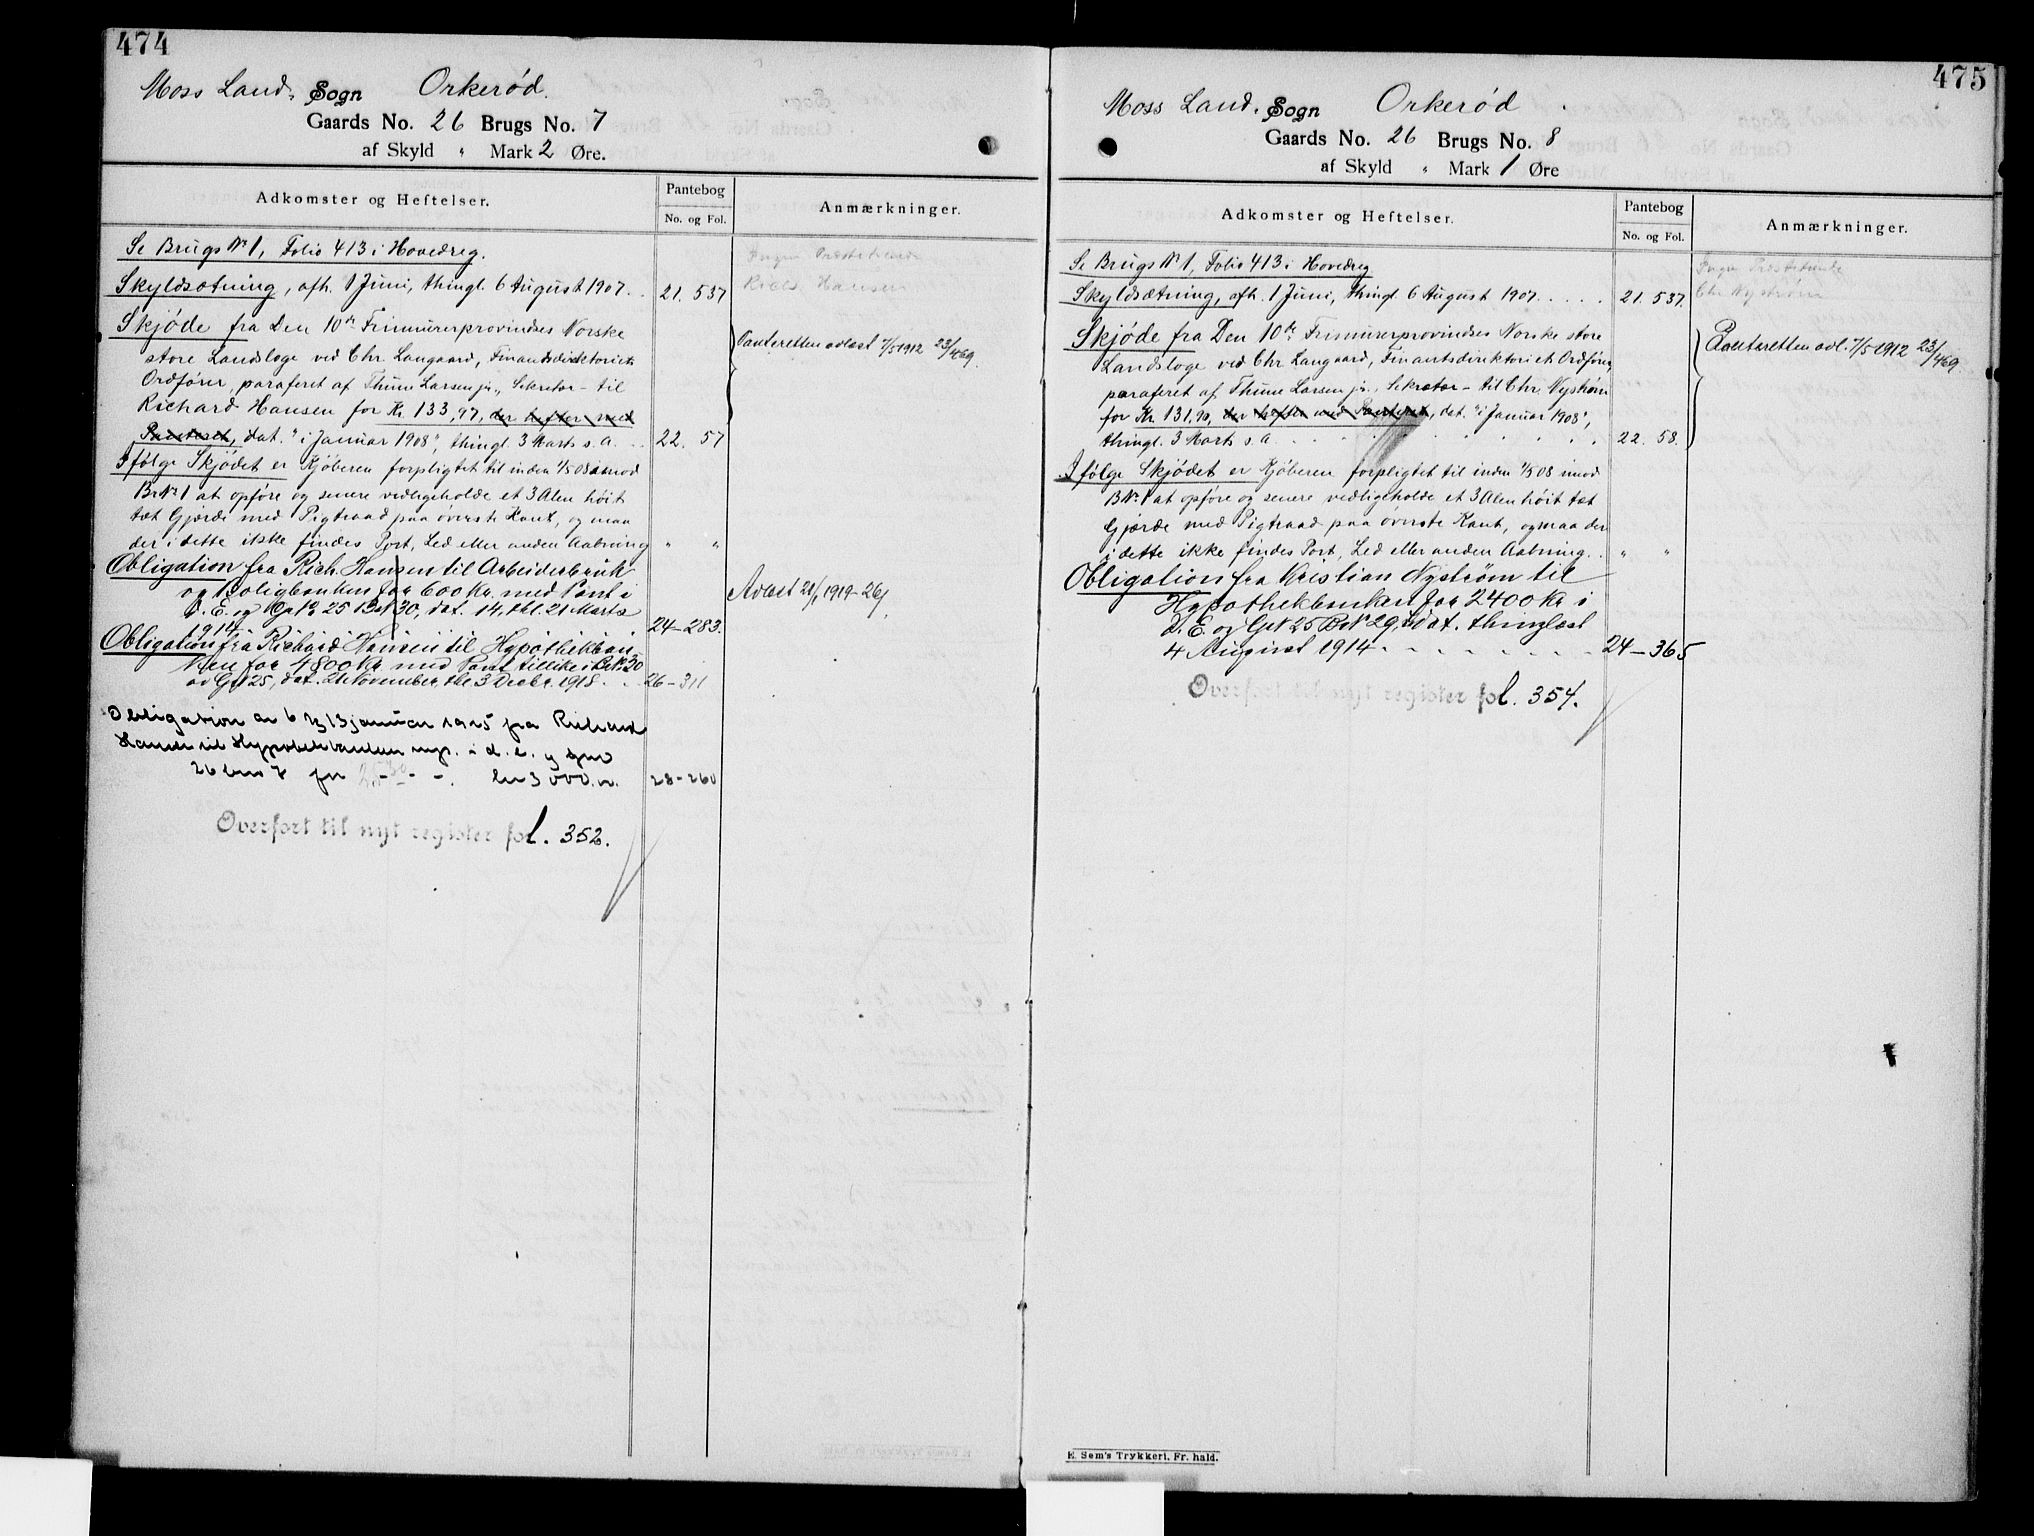 474
Moss Land. Sogn Orkerød.
Gaards No. 26 Brugs No. 7
af Skyld " Mark 2 Øre.
Adkomster og Heftelser.
Pantebog
No. og Fol.
Anmærkninger.
Se Brugs № 1, Folio 413 i Hovedreg.
Skyldsætning, afh. 1 Juni, thingl. 6 August 1907. . 21. 537
Richd. Hansen
Skjøde fra Den 10de Frimurerprovindses Norske
store Landsloge ved Chr Langaard, Finantsdirektoriets
Panteretten avlæst 7/5 1912 23/469.
Ordfører, paraferet af Thune Larsen jr., Sekretær - til
Richard Hansen for Kr. 133,97, der hefter med
Panteret, dat. "i Januar 1908", thingl. 3 Marts s. A. . . 22. 57
Ifølge Skjødet er Kjøberen forpligtet til inden 1/5 08 imod
Br № 1 at opføre og senere vedligeholde et 3 Alen høit
tæt Gjærde med Pigtraad paa øverste Kant, og maa
der i dette ikke findes Port, Led eller anden Aabning " "
Obligation fra Rich. Hansen til Arbeiderbruk
og Boligbanken for 600 Kr. med Pant i
D. E. og Gr № 25 B № 30, dat. 14, thl. 21 Marts
1914 24-283.
Avlæst 21/1 1919-26/
Obligation fra Richard Hansen til Hypothekban-
ken for 4800 Kr. med Pant tillike i Br. № 30
av G № 25, dat. 21 November, thl. 3 Decbr. 1918. . . 26-311
Obligation av 6 Tgl 13 januar 1925 fra Richard
Hansen til Hypotekbanken i d. e. og gno
26 bno 7 for - - - . kr 3000.00. 28-260
Overført til nyt register fol. 352.
475
Moss Land. Sogn Orkerød
Gaards No. 26 Brugs No. 8
af Skyld " Mark 1 Øre
Adkomster og Heftelser.
Pantebog
No. og Fol.
Anmærkninger.
Se Brugs № 1, Folio 413 i Hovedreg
Skyldsætning, afh. 1 Juni, thingl. 6 August 1907. . . . . 21. 537.
Chr Nystrøm
Skjøde fra Den 10de Frimurerprovindses Norske store
Landsloge ved Chr Langaard, Finantsdirektoriets Ordfører,
Panteretten avl. 7/5 1912 23/469.
paraferet af Thune Larsen jr., Sekretær - til Chr. Nystrøm
for Kr. 131,90, der hefter med Panteret, dat. "i Januar 1908",
thingl. 3 Marts s. A. . . . . . . . . 22. 58.
Ifølge Skjødet er Kjøberen forpligtet til inden 1/5 08 imod
B № 1 at opføre og senere vedligeholde et 3 Alen høit tæt
Gjærde med Pigtraad paa øverste Kant, og maa der
i dette ikke findes Port, Led eller anden Aabning. . " "
Obligation fra Kristian Nystrøm til
Hypothekbanken for 2400 Kr i
D. E. og G № 25 B № 29, dat. thinglæst
4 August 1914 - - - - - - - - 24-365
Overført til nyt register fol. 354.
E. Sem's Trykkeri, Fr. hald.